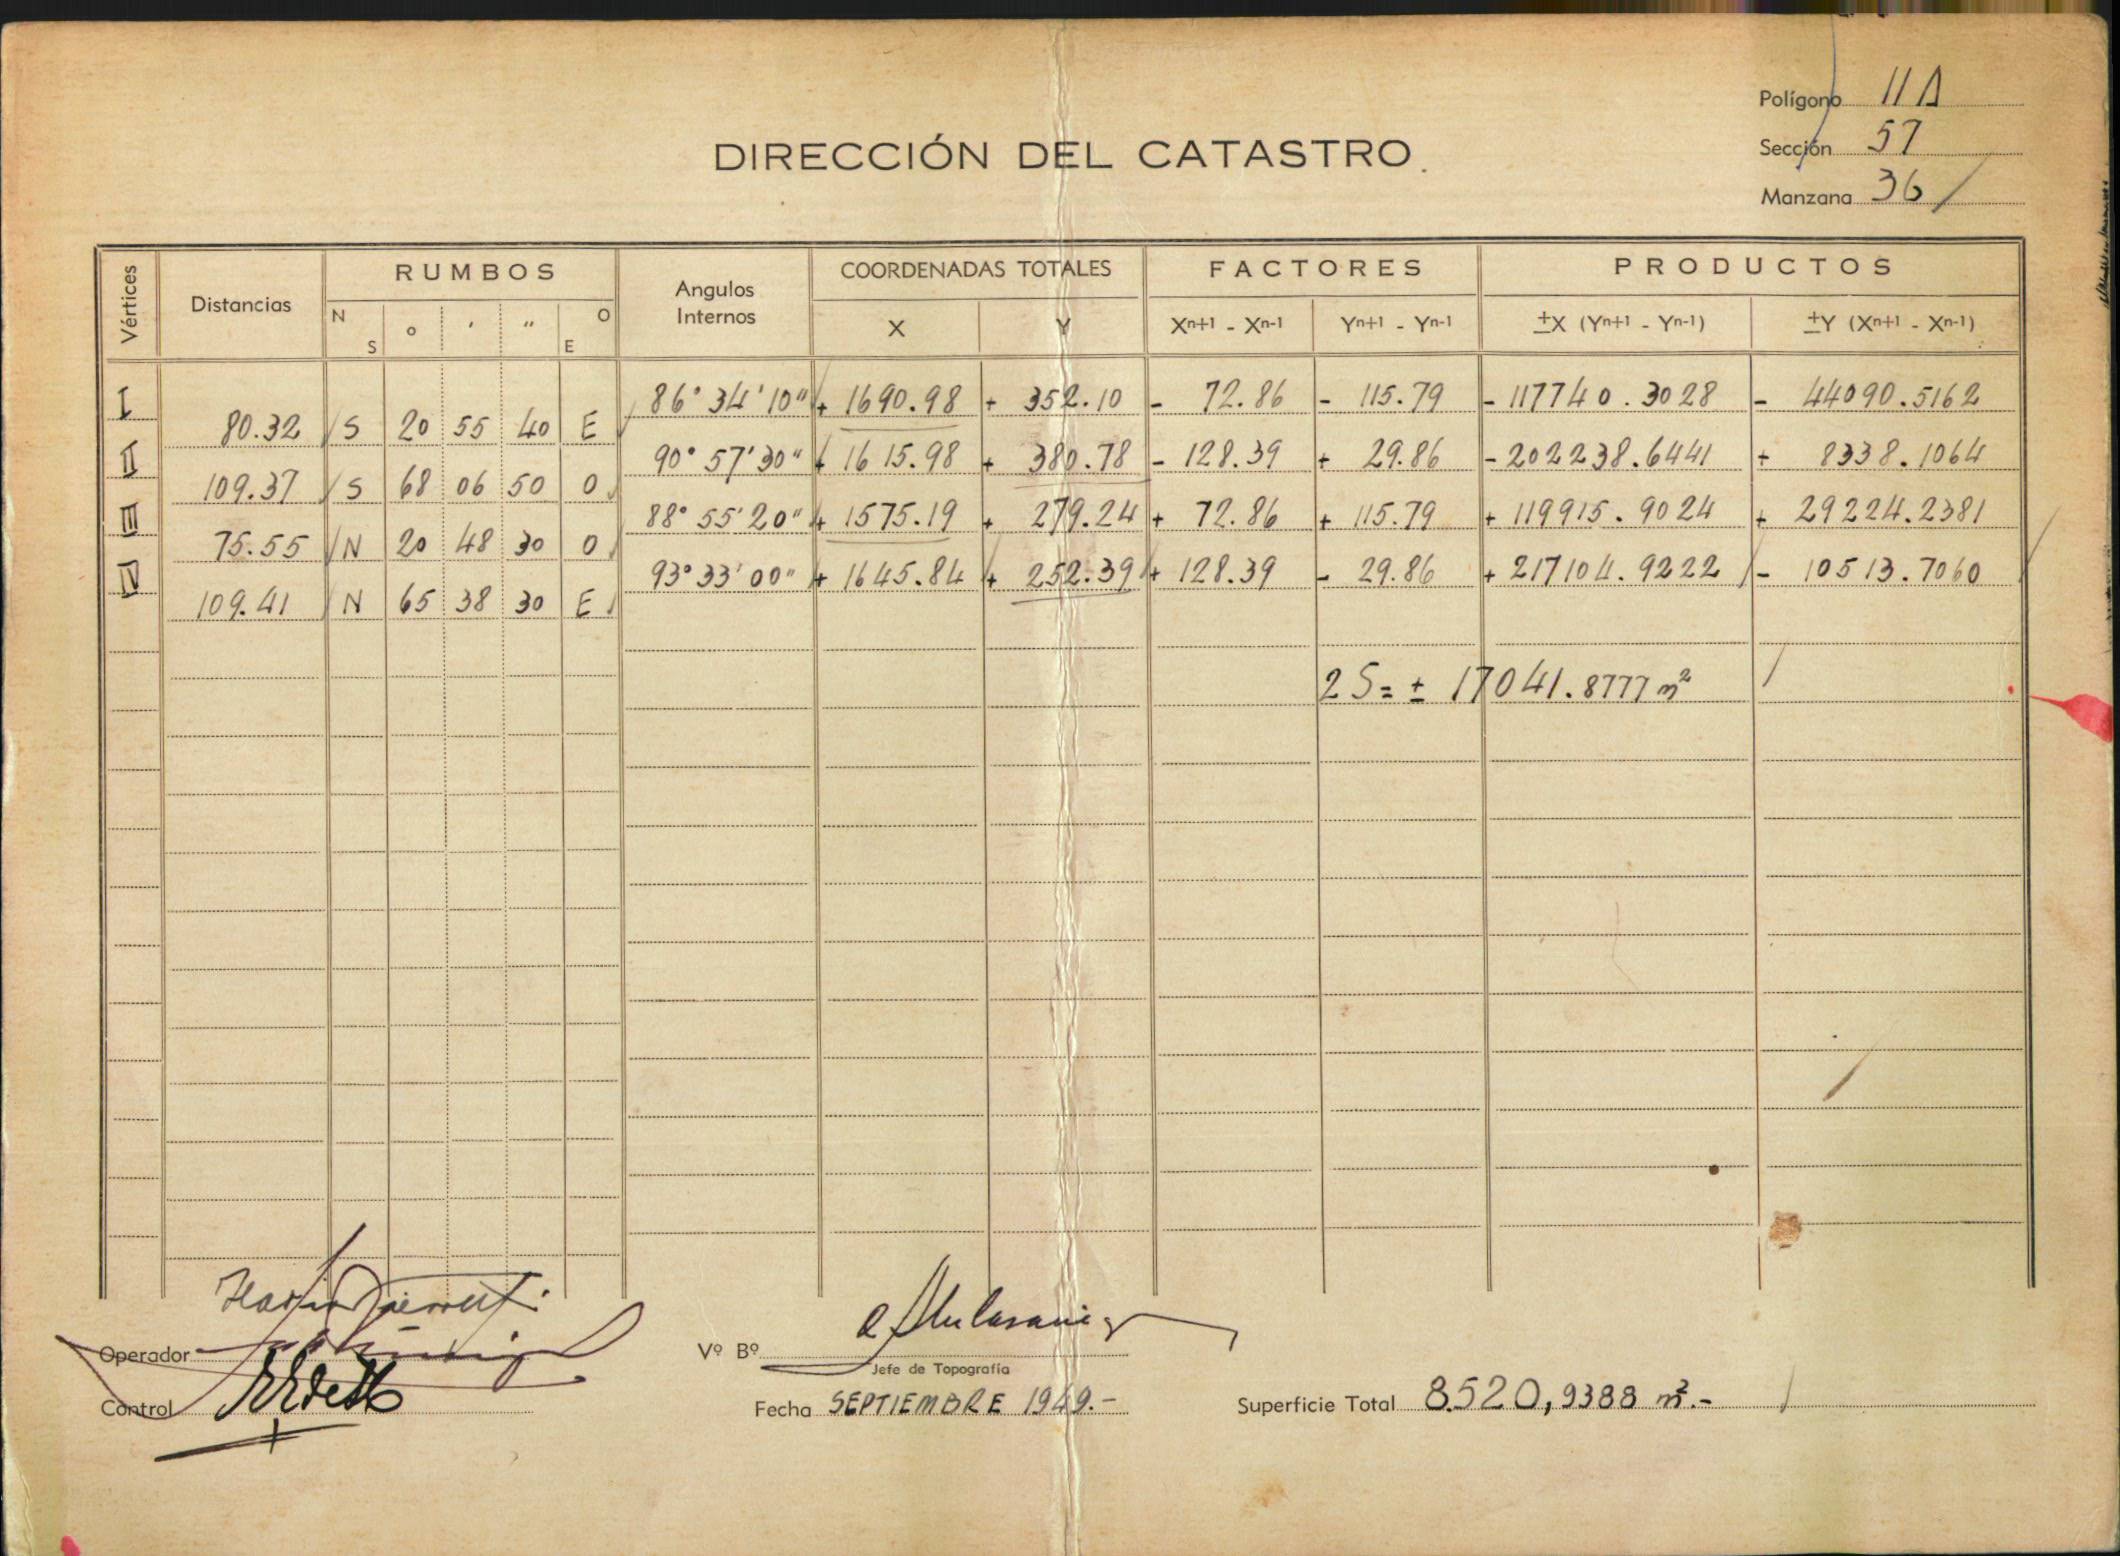 Polígono 11A
Sección 57
Manzana 36 /
DIRECCIÓN DEL CATASTRO.
Vértices Distancias RUMBOS Angulos Internos COORDENADAS TOTALES FACTORES PRODUCTOS
N S ° ' " O E X Y Xn+1 - Xn-1 Yn+1 - Yn-1 ±X (Yn+1 - Yn-1) ±Y (Xn+1 - Xn-1)
I 86° 34' 10" + 1690.98 + 352.10 - 72.86 - 115.79 - 117740.3028 - 44090.5162
80.32 S 20 55 40 E
II 90° 57' 30" + 1615.98 + 380.78 - 128.39 + 29.86 - 202238.6441 + 8338.1064
109.37 S 68 06 50 O
III 88° 55' 20" + 1575.19 + 279.24 + 72.86 + 115.79 + 119915.9024 + 29224.2381
75.55 N 20 48 30 O
IV 93° 33' 00" + 1645.84 + 252.39 + 128.39 - 29.86 + 217104.9222 - 10513.7060
109.41 N 65 38 30 E
2S = ± 17041.8777 m²
Operador
Vº Bº
Jefe de Topografía
Control
Fecha SEPTIEMBRE 1949.-
Superficie Total 8.520,9388 m².-